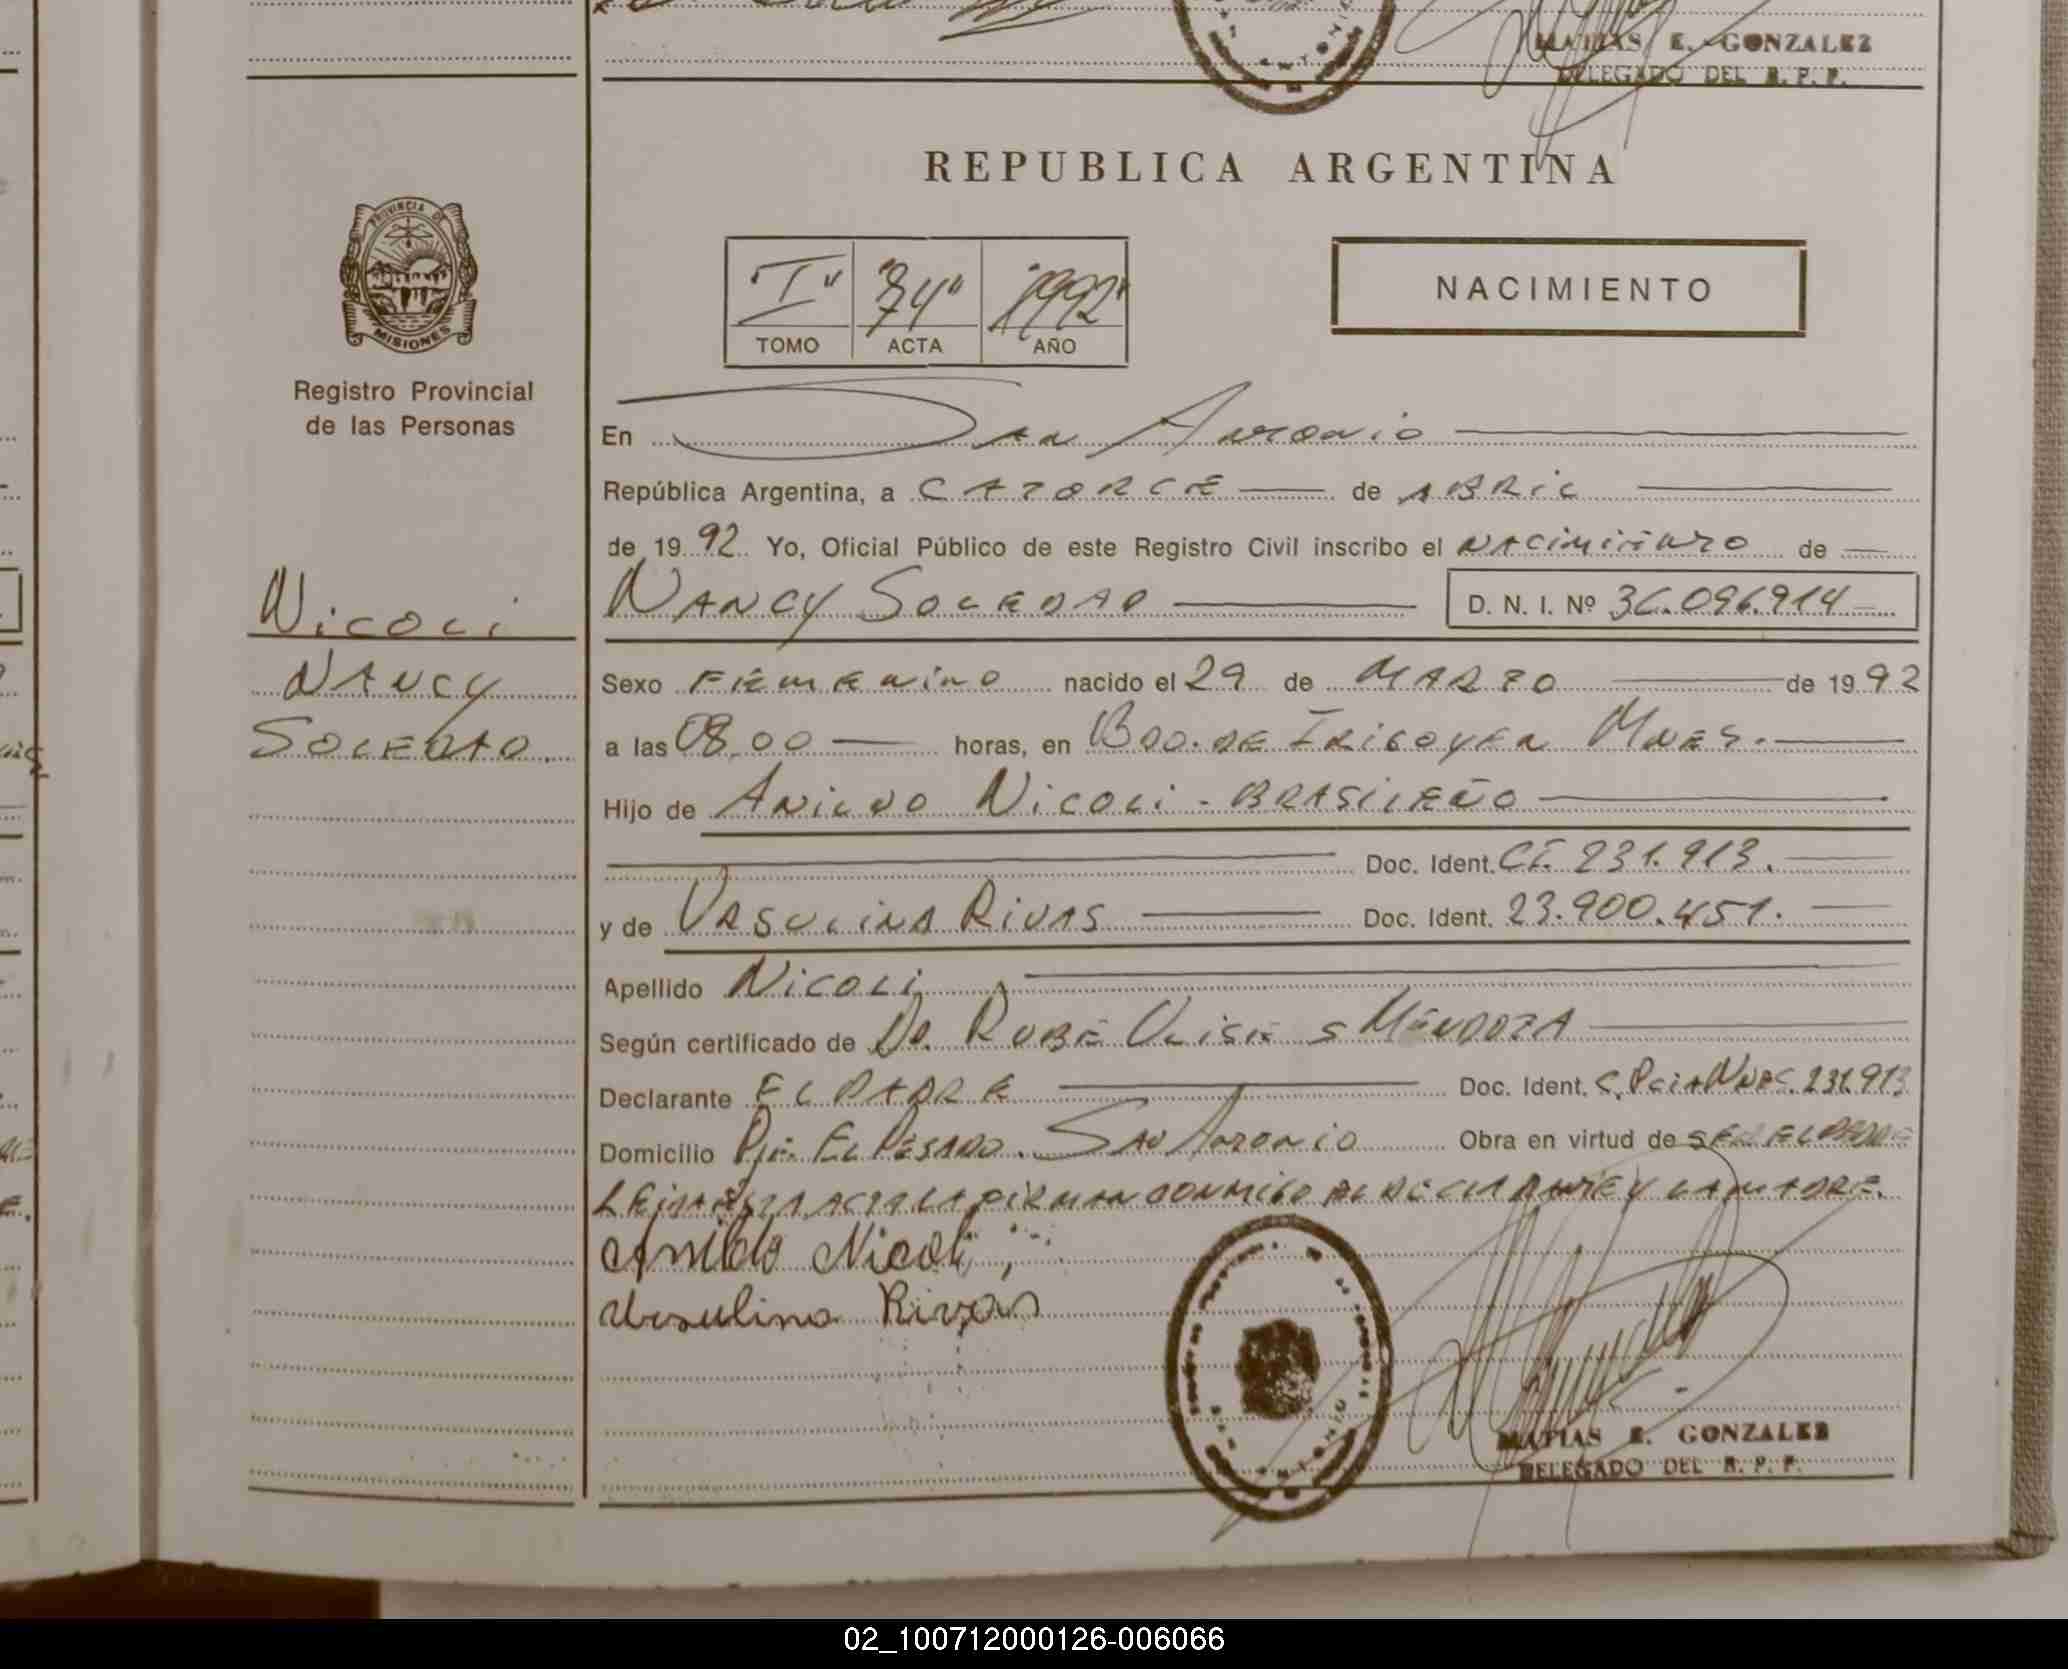 MATIAS E. GONZALEZ
DELEGADO DEL R. P. P.
REPUBLICA ARGENTINA
PROVINCIA DE
MISIONES
Registro Provincial
de las Personas
"I" "74" "1992"
TOMO ACTA AÑO
NACIMIENTO
En San Antonio
República Argentina, a CATORCE de ABRIL
de 1992 Yo, Oficial Público de este Registro Civil inscribo el NACIMIENTO de
NANCY SOLEDAD D. N. I. Nº 36.096.914
Nicoli
NANCY
SOLEDAD.
Sexo FEMENINO nacido el 29 de MARZO de 1992
a las 08,00 horas, en BDO. DE IRIGOYEN MNES.
Hijo de ANILDO NICOLI - BRASILEÑO
Doc. Ident. CI. 231.913.
y de URSULINA RIVAS Doc. Ident. 23.900.451.
Apellido NICOLI
Según certificado de Dr. RUBE ULISES MENDOZA
Declarante EL PADRE Doc. Ident. C. Pcia Mnes. 231.913
Domicilio Pje. EL PESADO. SAN ANTONIO Obra en virtud de SER EL PADRE
LEIDA ESTA ACTA LA FIRMAN CONMIGO EL DECLARANTE Y LA MADRE.
Anildo Nicoli
Ursulina Rivas
MATIAS E. GONZALEZ
DELEGADO DEL R. P. P.
02_100712000126-006066